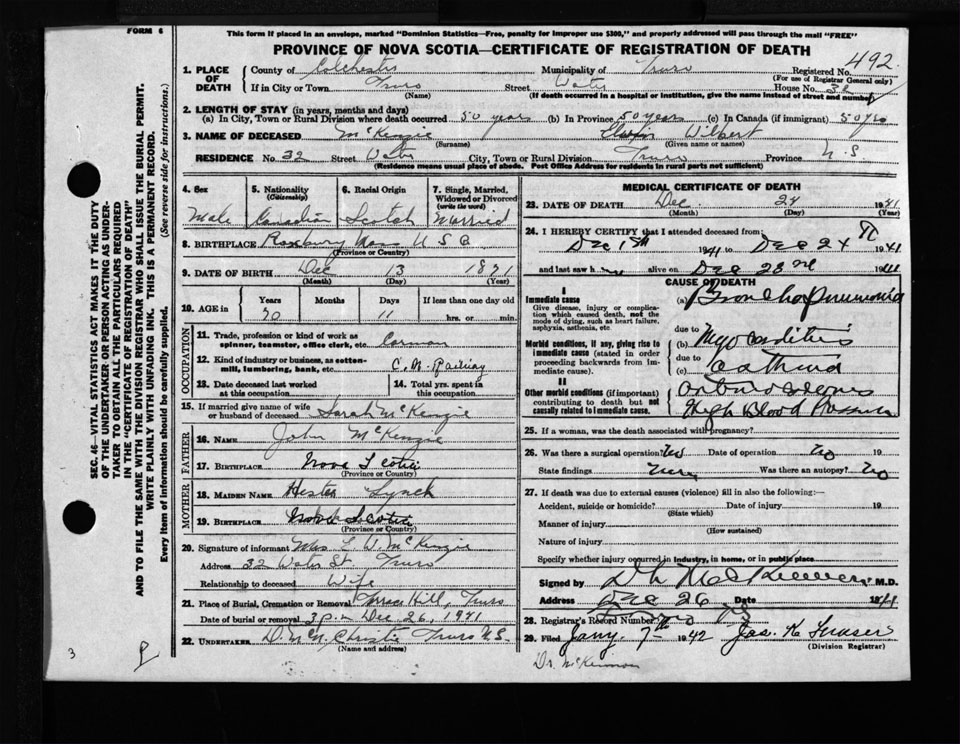 FORM 6
This form if placed in an envelope, marked "Dominion Statistics—Free, penalty for improper use $300," and properly addressed will pass through the mail "FREE"
PROVINCE OF NOVA SCOTIA—CERTIFICATE OF REGISTRATION OF DEATH
1. PLACE OF DEATH
County of Colchester Municipality of Truro Registered No. 492
(For use of Registrar General only)
If in City or Town Truro Street Water House No. 32
(Name) (If death occurred in a hospital or institution, give the name instead of street and number)
2. LENGTH OF STAY (in years, months and days)
(a) In City, Town or Rural Division where death occurred 50 years (b) In Province 50 years (c) In Canada (if immigrant) 50 yrs
3. NAME OF DECEASED McKenzie Wilbert
(Surname) (Given name or names)
RESIDENCE No. 32 Street Water City, Town or Rural Division Truro Province N.S.
(Residence means usual place of abode. Post Office Address for residents in rural parts not sufficient)
4. Sex Male
5. Nationality (Citizenship) Canadian
6. Racial Origin Scotch
7. Single, Married, Widowed or Divorced (write the word) Married
8. BIRTHPLACE Roxbury Mass U S A
(Province or Country)
9. DATE OF BIRTH Dec 13 1871
(Month) (Day) (Year)
10. AGE in Years 70 Months Days 11 If less than one day old hrs. or min.
OCCUPATION
11. Trade, profession or kind of work as spinner, teamster, office clerk, etc. Carman
12. Kind of industry or business, as cotton-mill, lumbering, bank, etc. C. N. Railway
13. Date deceased last worked at this occupation
14. Total yrs. spent in this occupation
15. If married give name of wife or husband of deceased Sarah McKenzie
FATHER
16. NAME John McKenzie
17. BIRTHPLACE Nova Scotia
(Province or Country)
MOTHER
18. MAIDEN NAME Hester Lynch
19. BIRTHPLACE Nova Scotia
(Province or Country)
20. Signature of informant Mrs L W McKenzie
Address 32 Water St. Truro
Relationship to deceased Wife
21. Place of Burial, Cremation or Removal Terrace Hill, Truro
Date of burial or removal 3 p.m Dec 26, 1941
22. UNDERTAKER D. McN. Christie Truro N.S.
(Name and address)
MEDICAL CERTIFICATE OF DEATH
23. DATE OF DEATH Dec. 24 1941
(Month) (Day) (Year)
24. I HEREBY CERTIFY that I attended deceased from:
Dec 1st 1941 to Dec 24th 1941
and last saw h alive on Dec 23rd 1941
CAUSE OF DEATH
I
Immediate cause
Give disease, injury or complication which caused death, not the mode of dying, such as heart failure, asphyxia, asthenia, etc.
(a) Bronchopneumonia
due to
Morbid conditions, if any, giving rise to immediate cause (stated in order proceeding backwards from immediate cause).
(b) Myocarditis
due to
(c) Asthma
II
Other morbid conditions (if important) contributing to death but not causally related to immediate cause.
High Blood Pressure
25. If a woman, was the death associated with pregnancy?
26. Was there a surgical operation? Date of operation No 19
State findings Was there an autopsy? No
27. If death was due to external causes (violence) fill in also the following:—
Accident, suicide or homicide? Date of injury 19
(State which)
Manner of injury
(How sustained)
Nature of injury
Specify whether injury occurred in industry, in home, or in public place
Signed by M.D.
Address Dec 26 Date 1941
28. Registrar's Record Number
29. Filed Jany. 7th 1942 Jas. K Fraser
(Division Registrar)
Dr. McKinnon
SEC. 46—VITAL STATISTICS ACT MAKES IT THE DUTY OF THE UNDERTAKER OR PERSON ACTING AS UNDERTAKER TO OBTAIN ALL THE PARTICULARS REQUIRED IN THE "CERTIFICATE OF REGISTRATION OF DEATH" AND TO FILE THE SAME WITH THE DIVISION REGISTRAR WHO SHALL ISSUE THE BURIAL PERMIT.
WRITE PLAINLY WITH UNFADING INK. THIS IS A PERMANENT RECORD.
Every item of information should be carefully supplied. (See reverse side for instructions.)
3